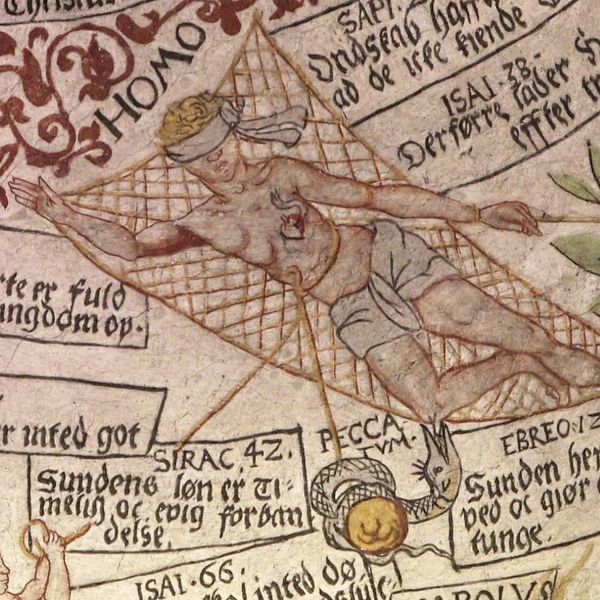 Christus
HOMO
SAPI.
Ondskab haff
ad de icke kiende
ISAI. 38.
Derførre lader
effter
te er fuld
ungdom op.
r inted got
SIRAC. 42.
Sundens løn er Ti-
melig oc evig forban
delse.
PECCA
TVM.
EBREO. 12
Sunden hen
ved oc giør
tunge.
ISAI. 66.
inted dø